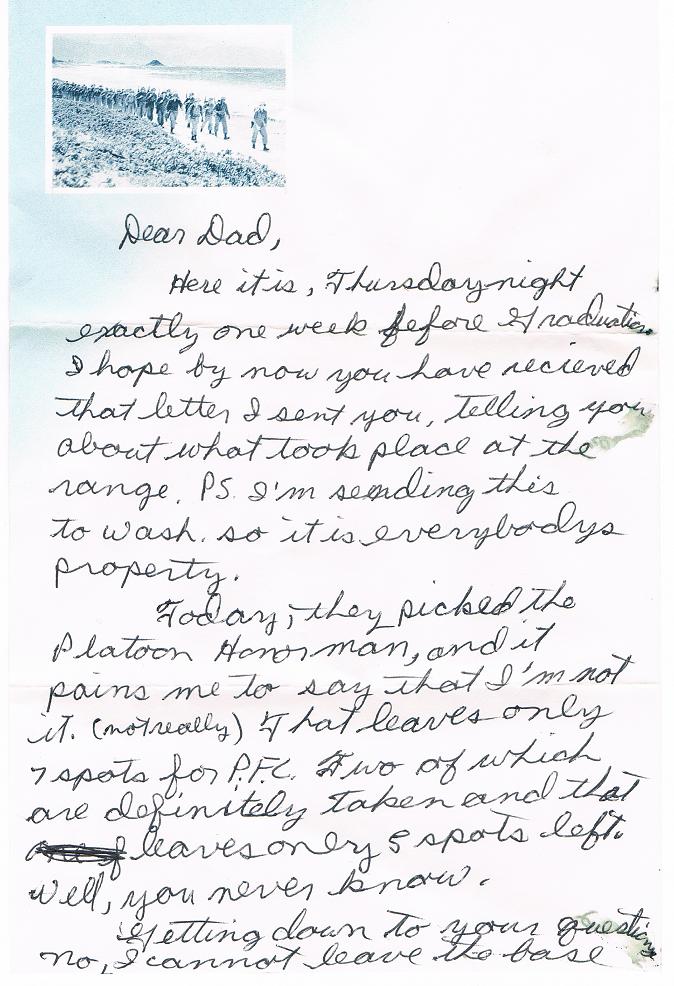 Dear Dad,
Here it is, Thursday night
exactly one week before Graduation.
I hope by now you have recieved
that letter I sent you, telling you
about what took place at the
range. PS. I'm sending this
to wash. so it is everybodys
property.
Today, they picked the
Platoon Honor man, and it
pains me to say that I'm not
it. (not really) That leaves only
7 spots for P.F.C. Two of which
are definitely taken and that
leaves only 5 spots left.
Well, you never know.
Getting down to your questions
no, I cannot leave the base